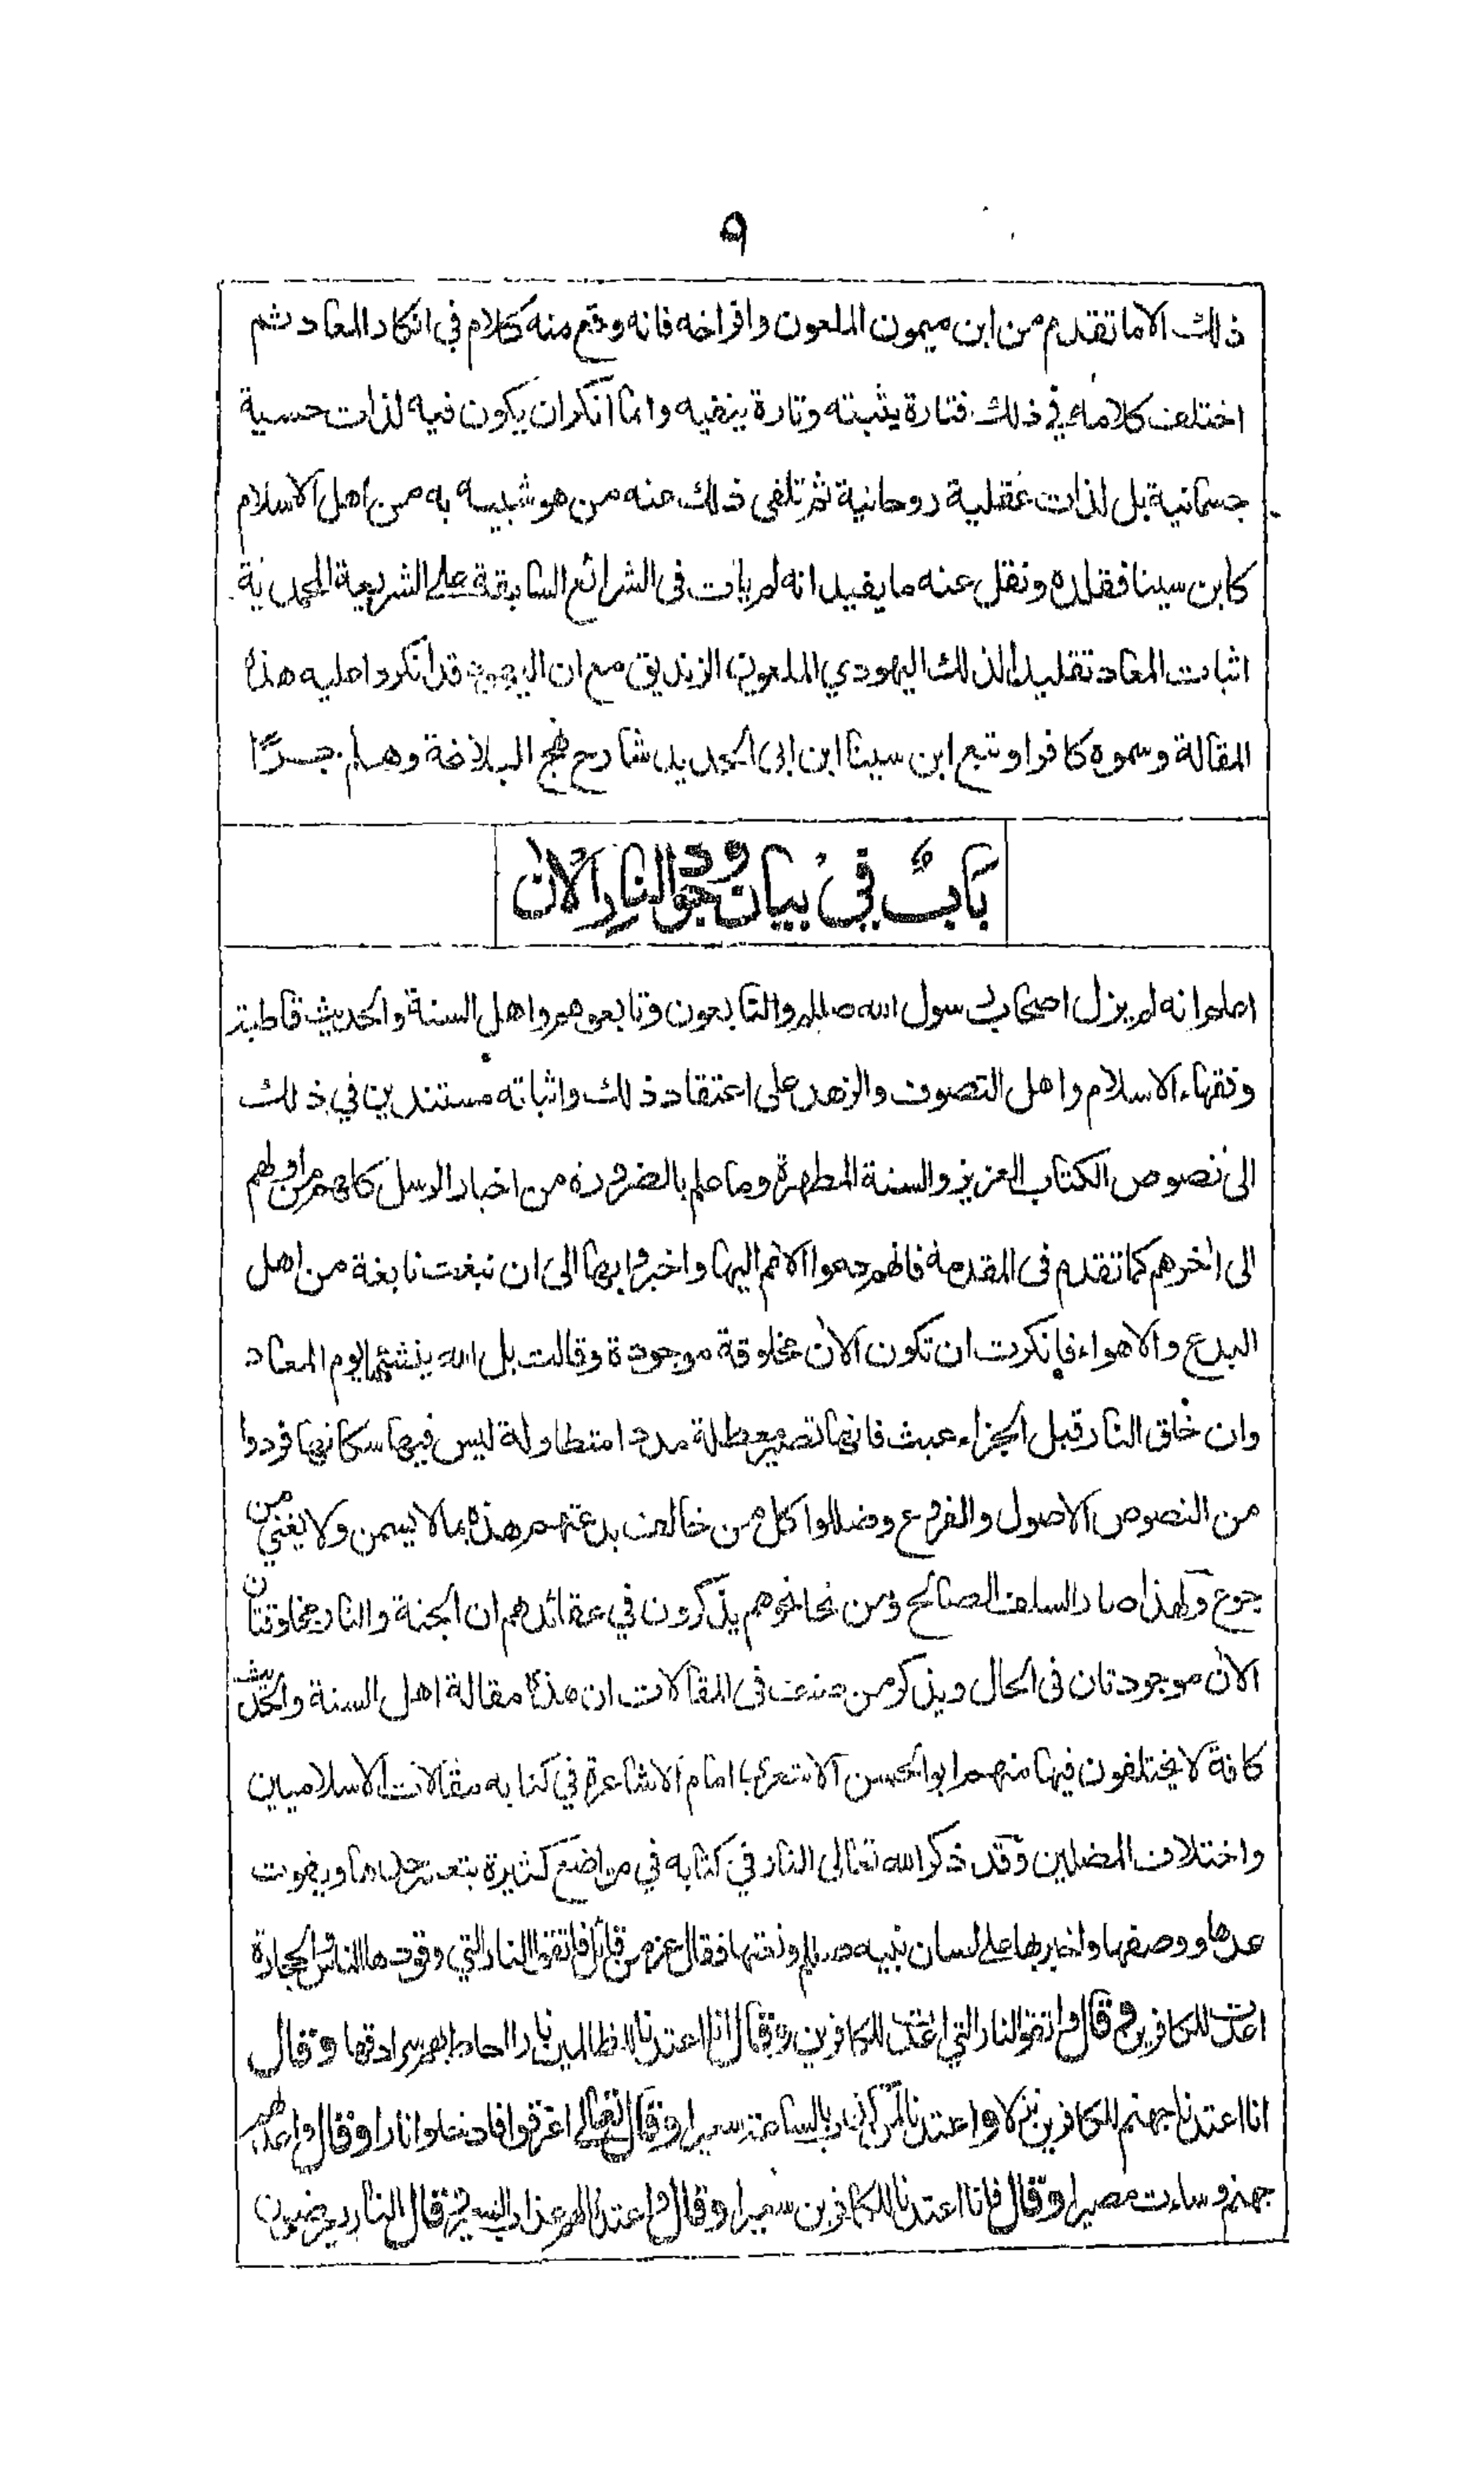 ٩
ذلك الا ما تقدم من ابن ميمون الملعون وافراخه فانه وقع منه كلام في انكار المعاد ثم
اختلف كلامه في ذلك فتارة يثبته وتارة ينفيه وانما انكران يكون فيه لذات حسية
جسمانية بل لذات عقلية روحانية ثم تلقى ذلك عنه من هو شبيه به من اهل الاسلام
كابن سينا فقلده ونقل عنه ما يفيد انه لم يات في الشرائع السابقة على الشريعة المحمدية
اثبات المعاد تقليدا لذلك اليهودي الملعون الزنديق مع ان اليهود قد انكروا عليه هذه
المقالة وسموه كافرا وتبع ابن سينا ابن ابى الحديد شارح نهج البلاغة وهلم جرًّا
باب في بيان وجود النار الآن
اعلم انه لم يزل اصحاب رسول الله صللم والتابعون وتابعوهم واهل السنة والحديث قاطبة
وفقهاء الاسلام واهل التصوف والزهد على اعتقاد ذلك واثباته مستندين في ذلك
الى نصوص الكتاب العزيز والسنة المطهرة وما علم بالضرورة من اخبار الرسل كلهم من اولهم
الى اخرهم كما تقدم فى المقدمة فانهم دعوا الامم اليها واخبروا بها الى ان نبغت نابغة من اهل
البدع والاهواء فانكرت ان تكون الآن مخلوقة موجودة وقالت بل الله ينشئها يوم المعاد
وان خلق النار قبل الجزاء عبث فانها تصير معطلة مددا متطاولة ليس فيها سكانها فردوا
من النصوص الاصول والفروع وضللوا كل من خالف بدعتهم هذه بما لا يسمن ولا يغني من
جوع ولهذا صار السلف الصالح ومن نحا نحوهم يذكرون في عقائدهم ان الجنة والنار مخلوقتان
الآن موجودتان فى الحال ويذكر من صنف فى المقالات ان هذه مقالة اهل السنة والحديث
كافة لا يختلفون فيها منهم ابو الحسن الاشعري امام الاشاعرة في كتابه مقالات الاسلاميين
واختلاف المضلين وقد ذكر الله تعالى النار في كتابه في مواضع كثيرة يتعسر حدها ويفوت
عدها ووصفها واخبر بها على لسان نبيه صللم ونعتها فقال عز من قائل فاتقوا النار التي وقودها الناس والحجارة
اعدت للكافرين وقال واتقوا النار التي اعدت للكافرين وقال انا اعتدنا للظالمين نارا احاط بهم سرادقها وقال
انا اعتدنا جهنم للكافرين نزلا واعتدنا لمن كذب بالساعة سعيرا وقال تعالى اغرقوا فادخلوا نارا وقال واعد لهم
جهنم وساءت مصيرا وقال فانا اعتدنا للكافرين سعيرا وقال واعتدنا لهم عذاب السعير وقال النار يعرضون